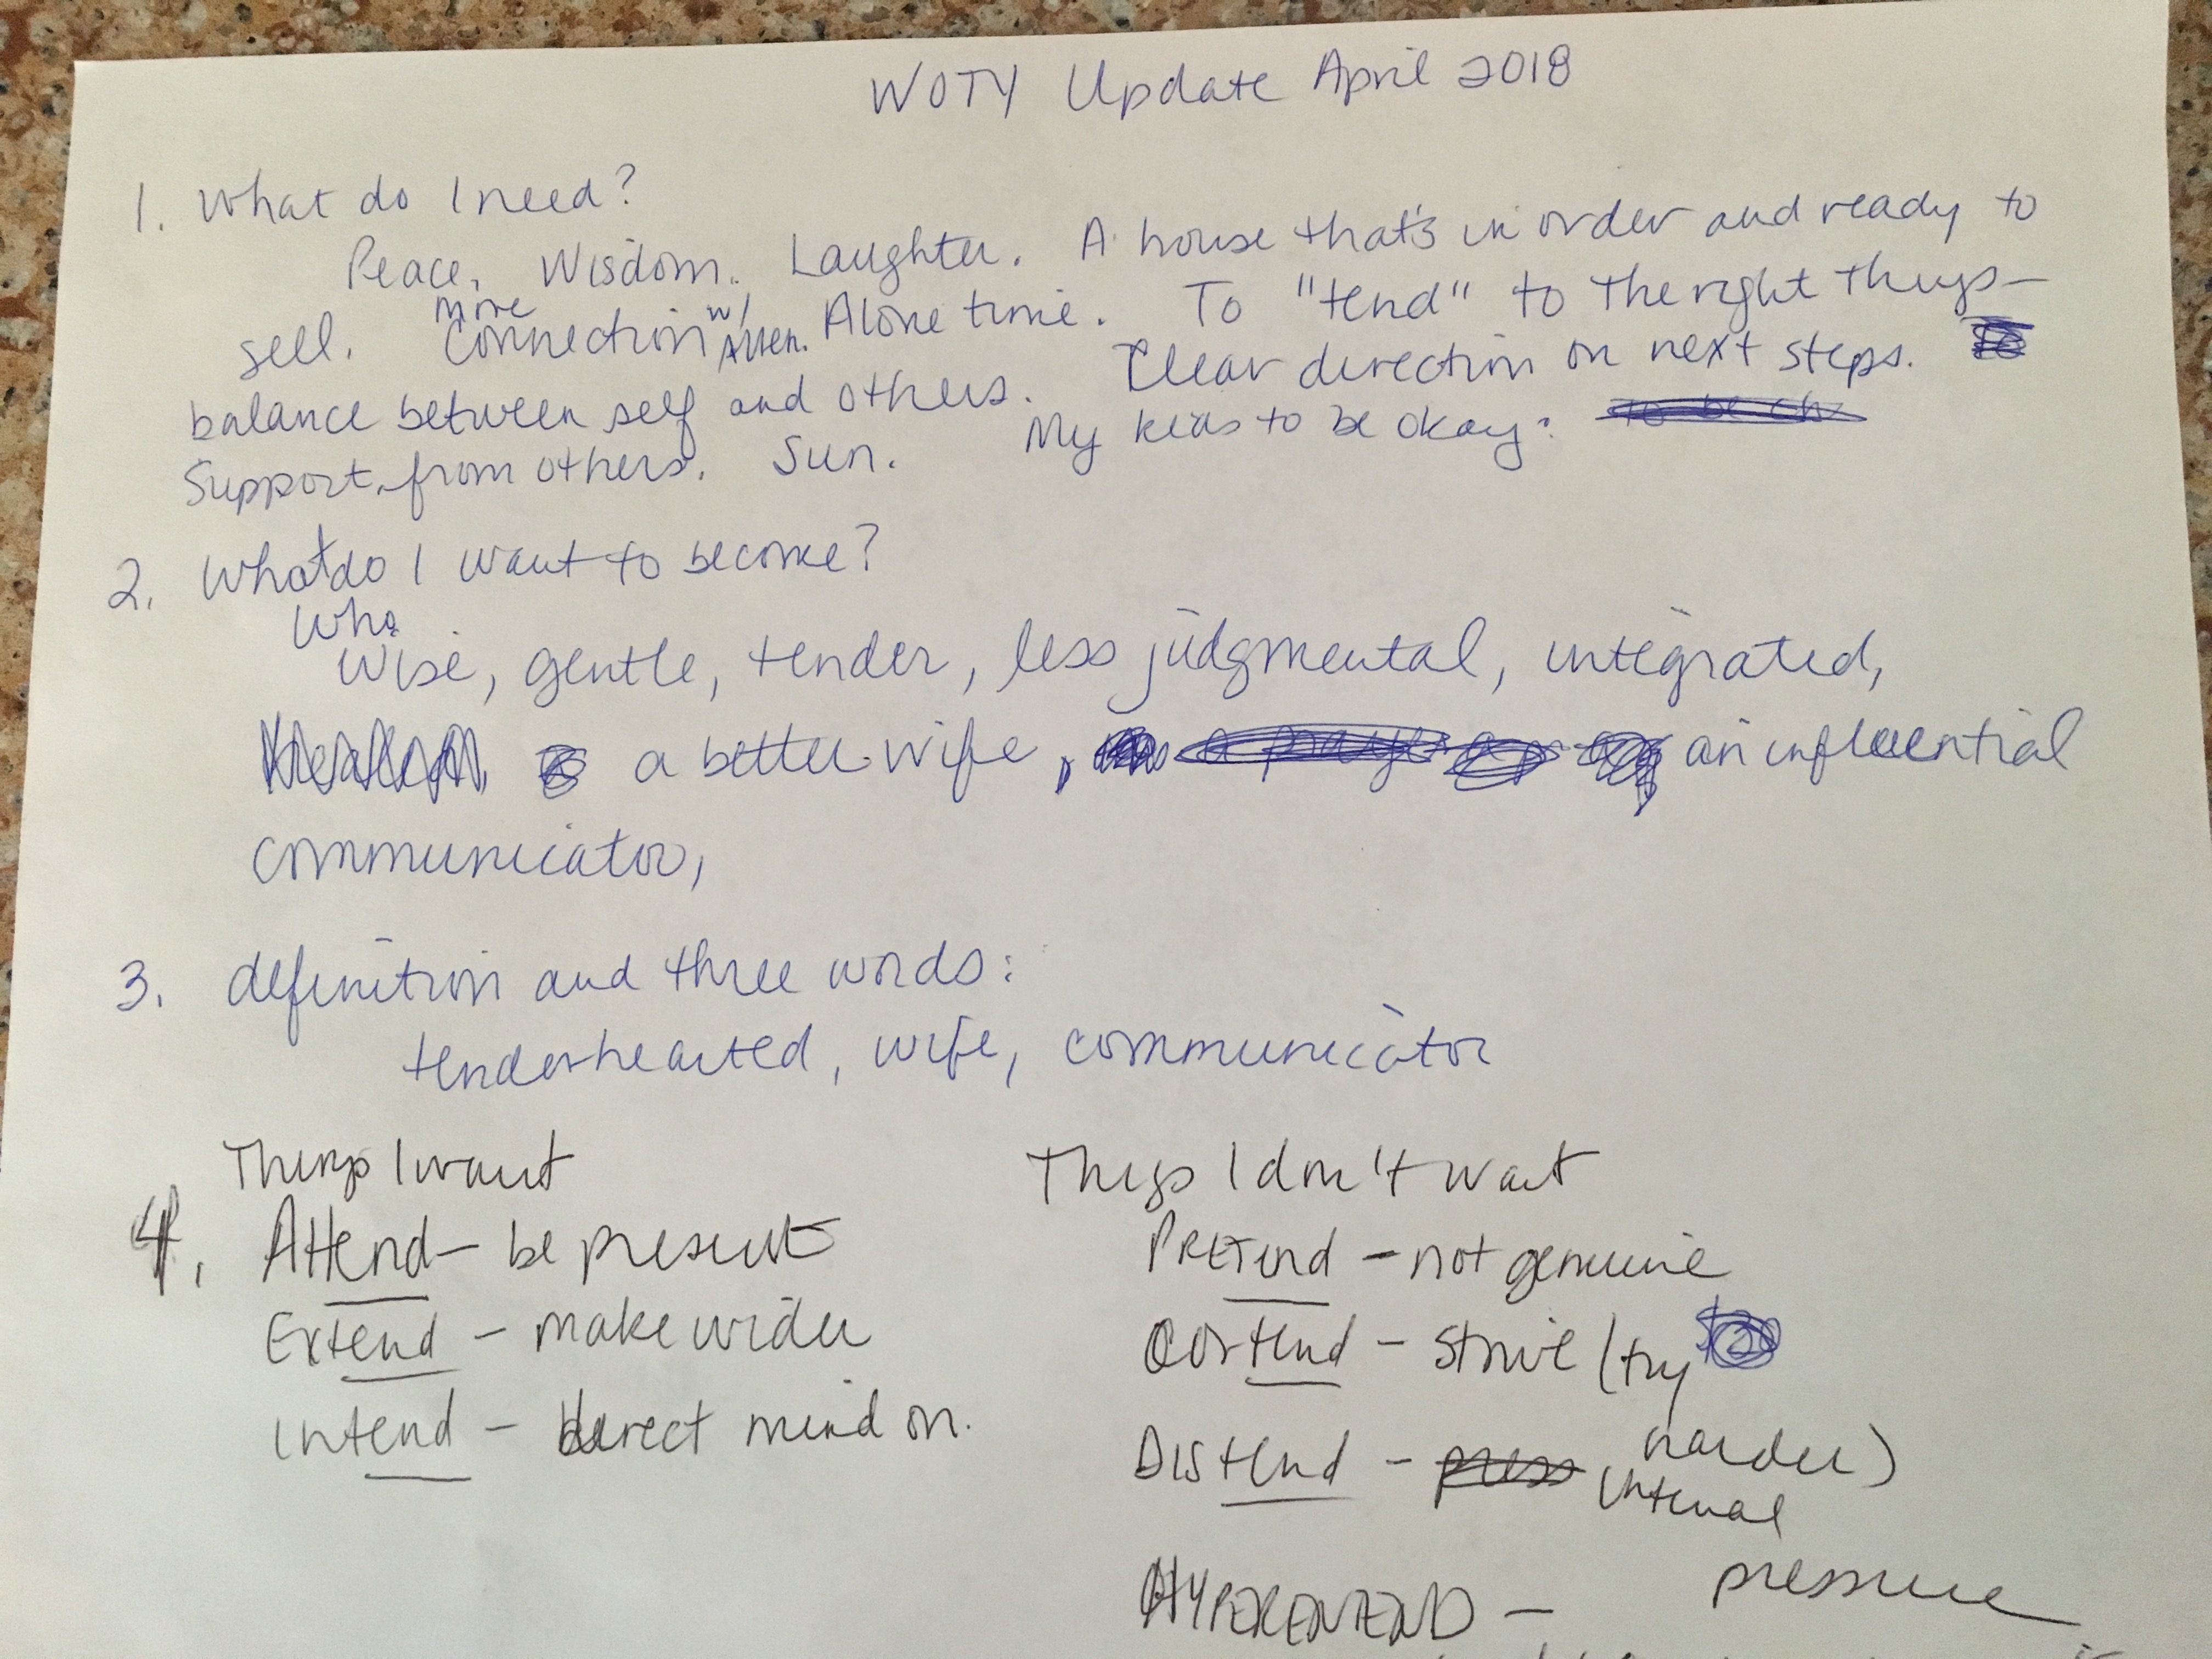 WOTY Update April 2018
1. What do I need?
Peace. Wisdom. Laughter. A house that's in order and ready to
sell. more Connection w/ Allen. Alone time. To "tend" to the right things—
balance between self and others. Clear direction on next steps.
Support from others. Sun. My kids to be okay.
2. What do I want to become?
Who
Wise, gentle, tender, less judgmental, integrated,
a better wife, an influential
communicator,
3. definition and three words:
tenderhearted, wife, communicator
Things I want Things I don't want
4. Attend – be present PRETend – not genuine
Extend – make wider Contend – strive (try
harder)
Intend – direct mind on. Distend – internal
pressure
HYPEREXTEND –